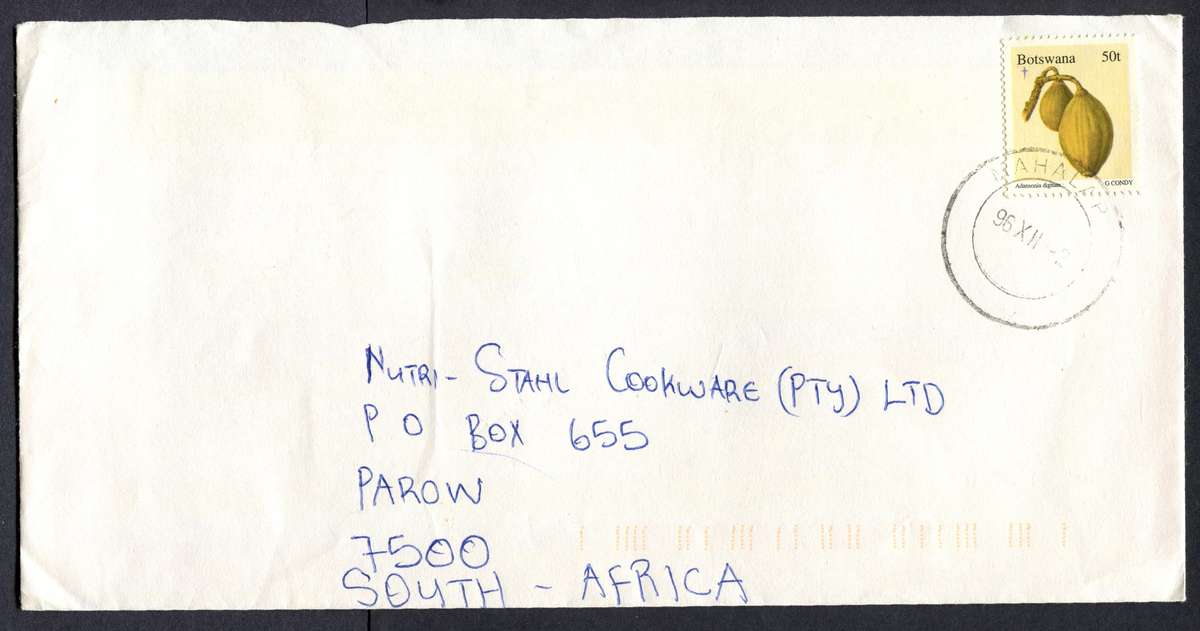 Botswana 50t
Adansonia digitata
G CONDY
MAHALAP
96 XII -2
NUTRI- STAHL COOKWARE (PTY) LTD
P O BOX 655
PAROW
7500
SOUTH - AFRICA